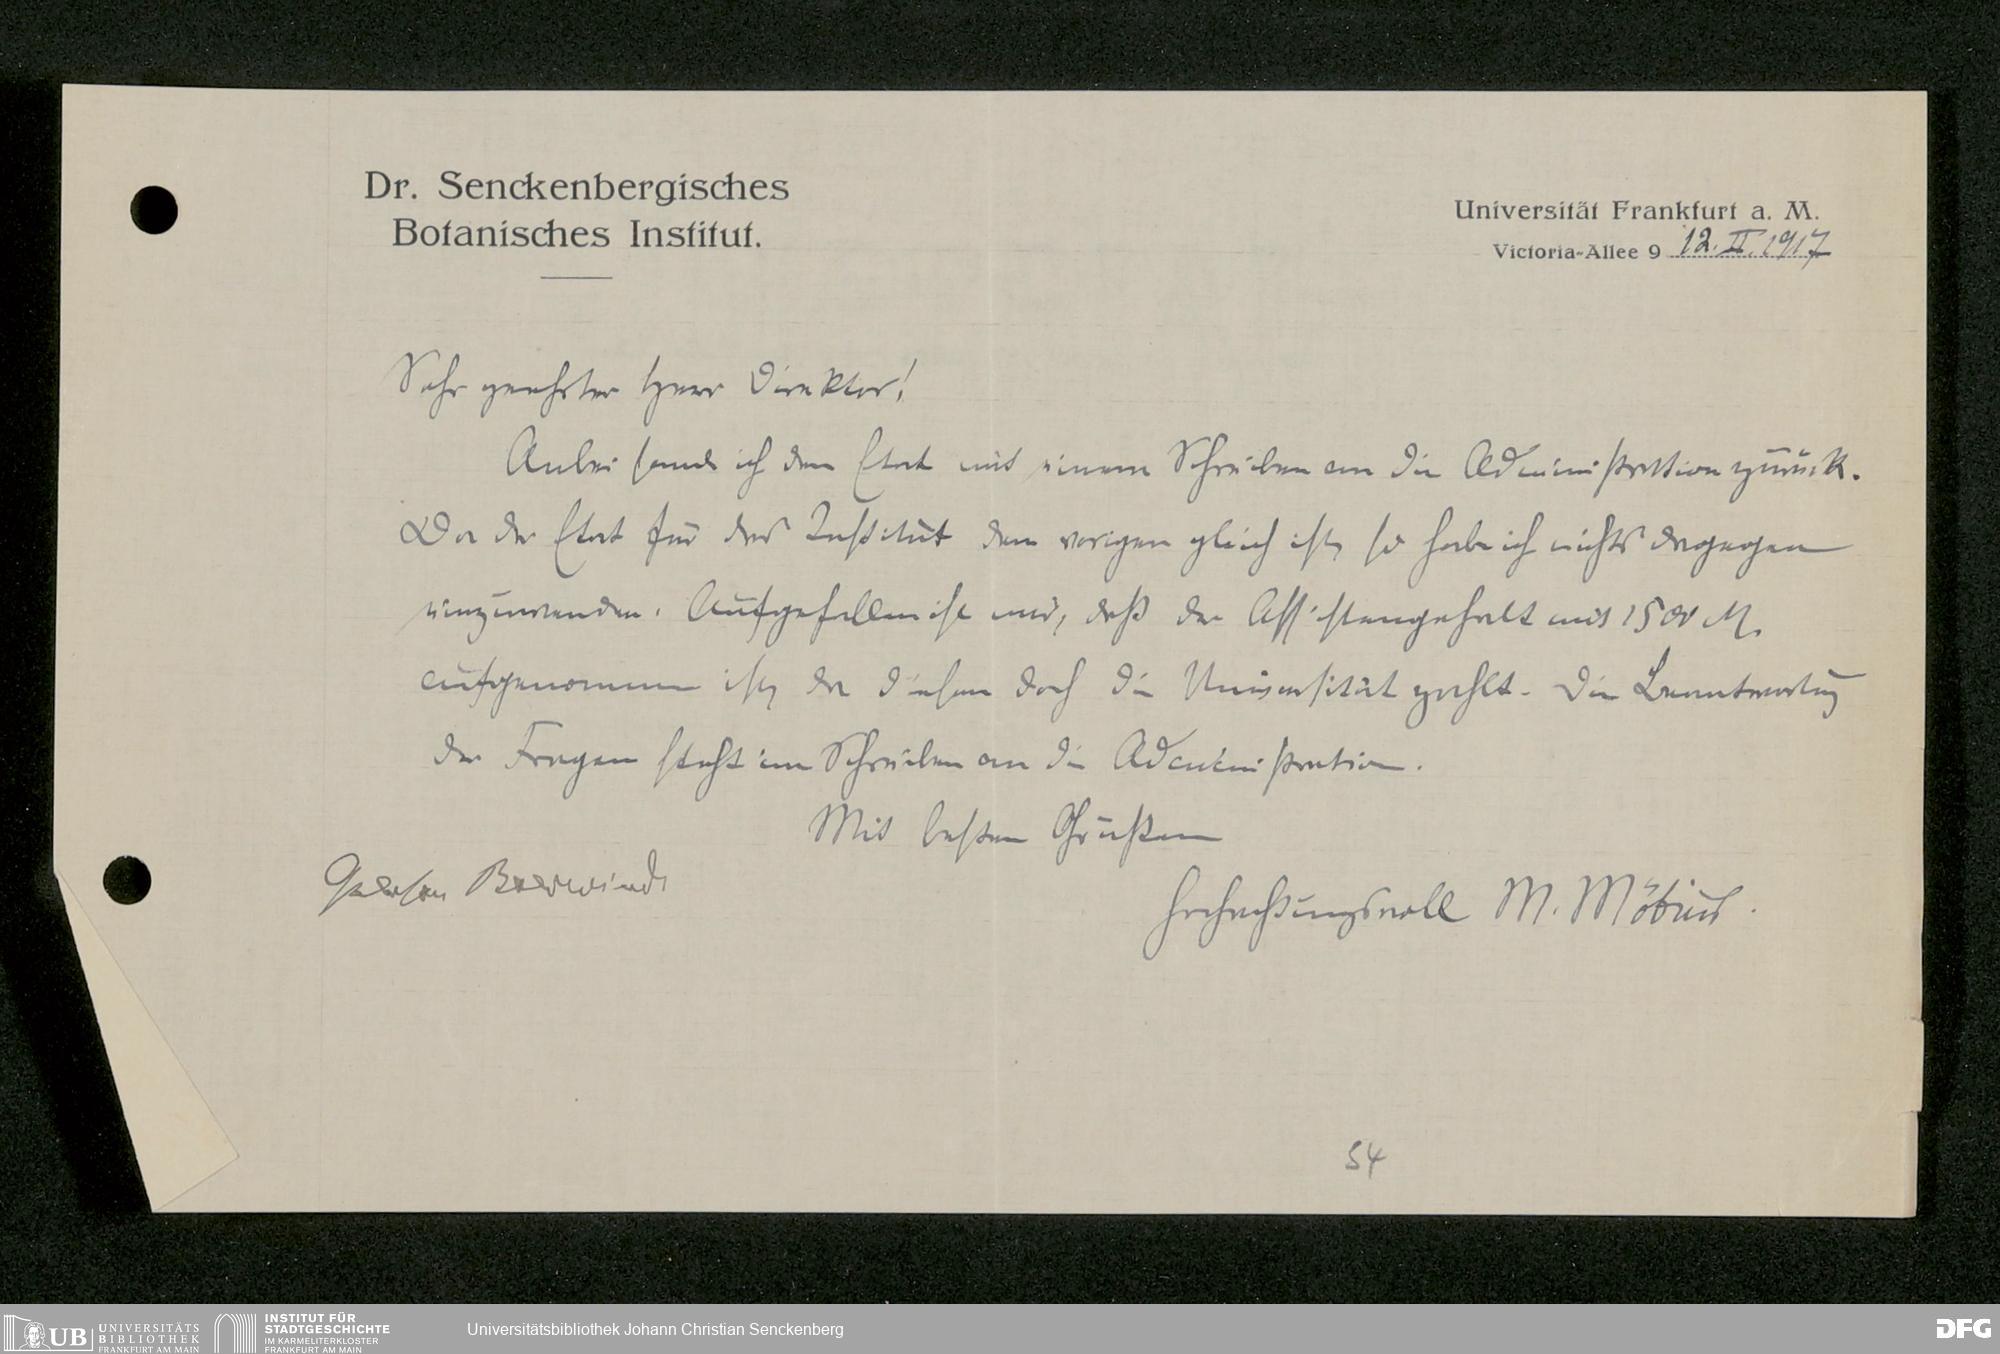 Dr. Senckenbergisches
Botanisches Institut.
Universität Frankfurt a. M.
Victoria-Allee 9 12. II. 1917
Sehr geehrter Herr Direktor!
Anbei sende ich den Etat mit einem Schreiben an die Administration zurück.
Da der Etat für das Institut dem vorigen gleich ist, so habe ich nichts dagegen
einzuwenden. Aufgefallen ist mir, daß der Assistengehalt mit 1500 M.
aufgenommen ist, da diesen doch die Universität zahlt. Die Beantwortung
der Fragen steht im Schreiben an die Administration.
Mit besten Grüßen
hochachtungsvoll M. Möbius.
Gelesen
54
UB UNIVERSITÄTS
BIBLIOTHEK
FRANKFURT AM MAIN
INSTITUT FÜR
STADTGESCHICHTE
IM KARMELITERKLOSTER
FRANKFURT AM MAIN
Universitätsbibliothek Johann Christian Senckenberg
DFG